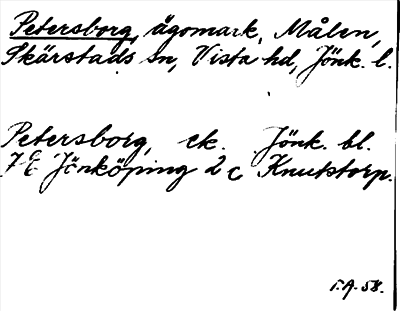 Petersborg, ägomark, Målen,
Skärstads sn, Vista hd, Jönk. l.
Petersborg, ek. Jönk. bl.
7E Jönköping 2 c Knutstorp.
F.A. 58.